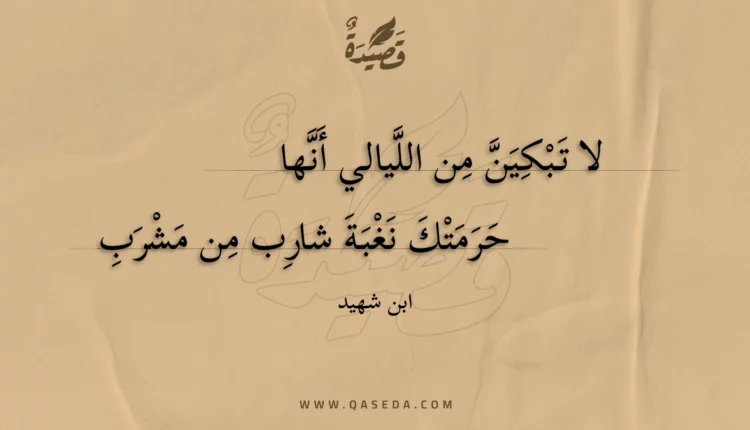 قَصِيْدَةٌ
لا تَبْكِيَنَّ مِن اللَّيالي أَنَّها
حَرَمَتْكَ نَغْبَةَ شارِب مِن مَشْرَبِ
ابن شهيد
WWW.QASEDA.COM